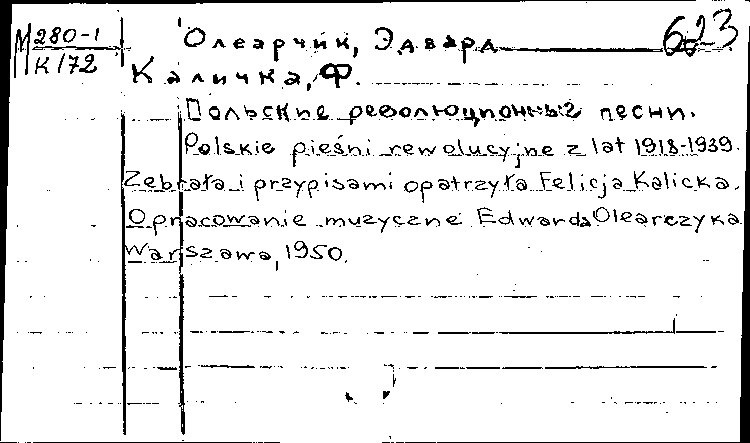 М 280-1 Олеарчик, Эдвард 623
К172 Каличка, Ф.
Польские революционные песни.
Polskie pieśni rewolucyjne z lat 1918-1939.
Zebrała i przypisami opatrzyła Felicja Kalicka.
Opracowanie muzyczne Edwarda Olearczyka
Warszawa, 1950.